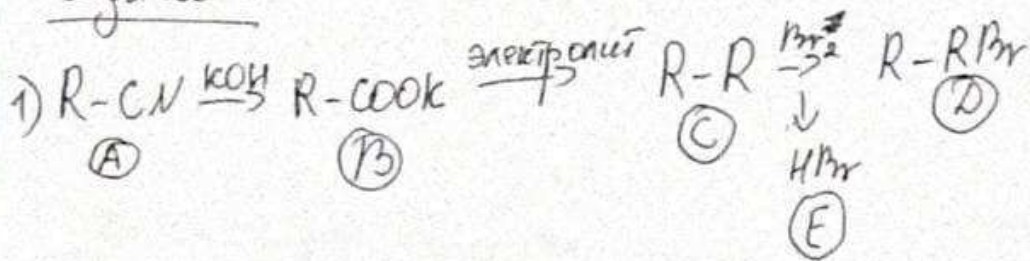 1) R-CN KOH R-COOK электролит R-R Br2 R-RBr
A B C D
HBr
E